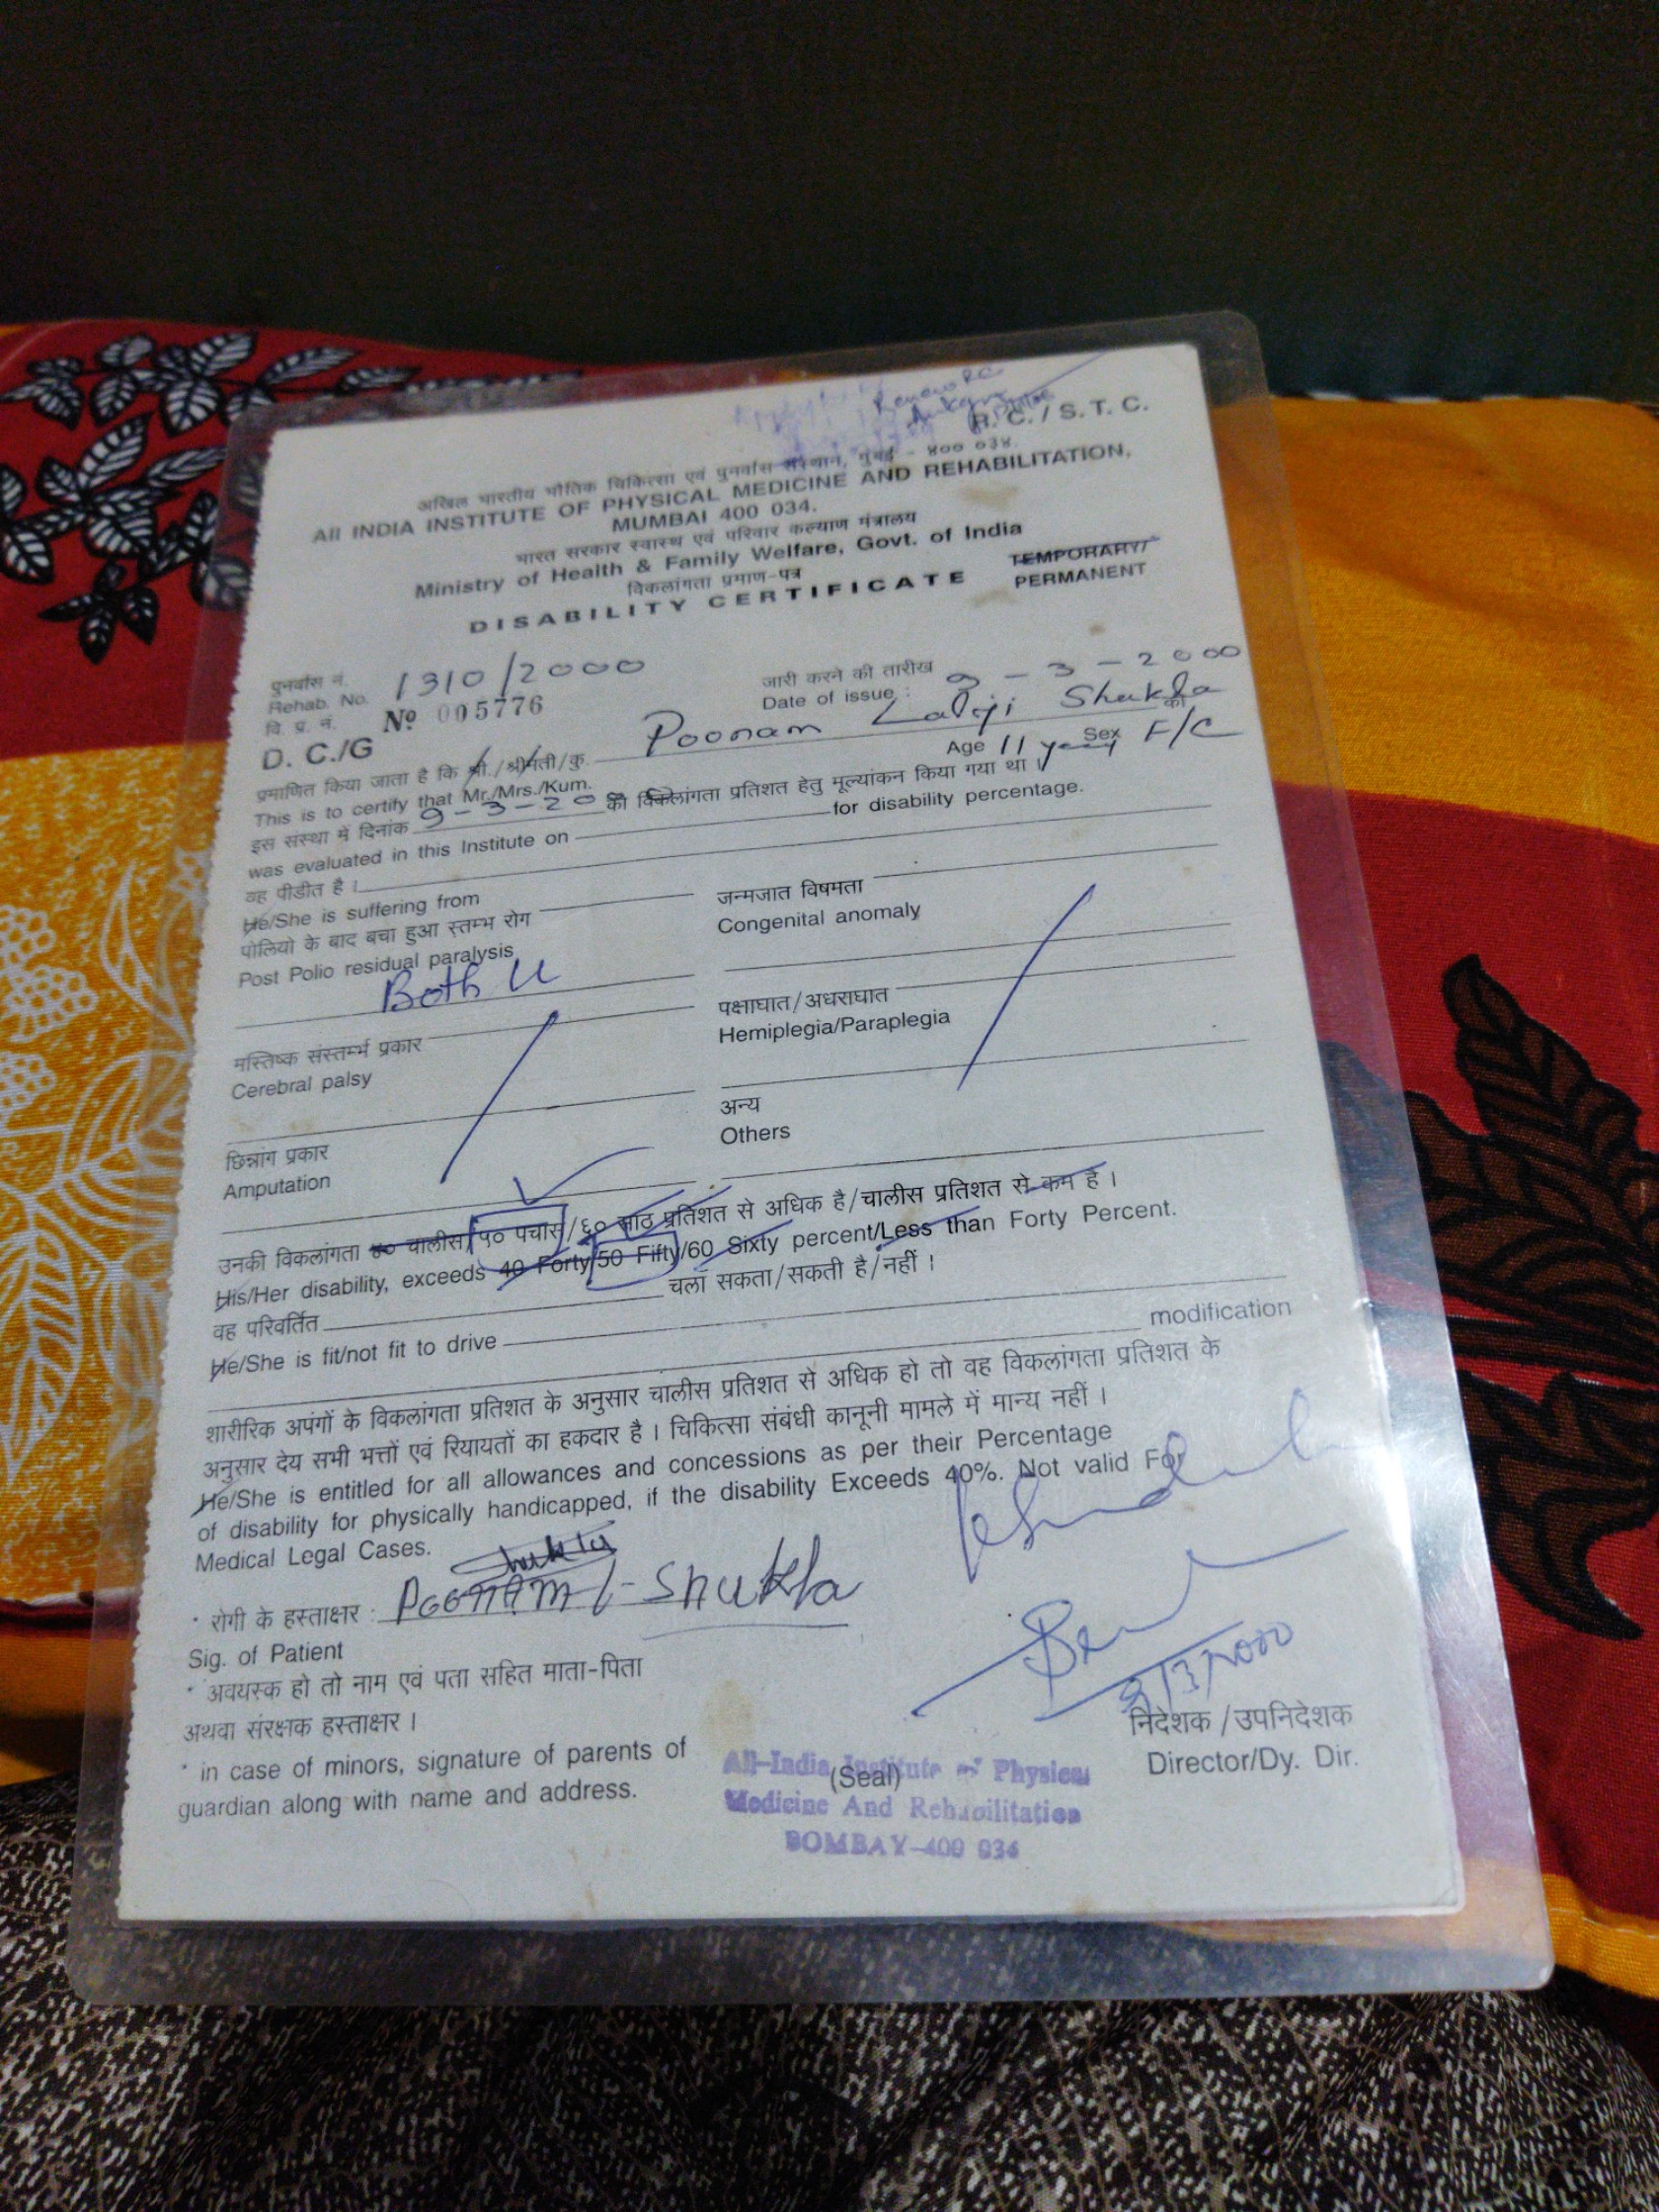 Renew RC
R. C. / S. T. C.
अखिल भारतीय भौतिक चिकित्सा एवं पुनर्वास संस्थान, मुंबई - ४०० ०३४.
All INDIA INSTITUTE OF PHYSICAL MEDICINE AND REHABILITATION,
MUMBAI 400 034.
भारत सरकार स्वास्थ एवं परिवार कल्याण मंत्रालय
Ministry of Health & Family Welfare, Govt. of India
विकलांगता प्रमाण-पत्र
TEMPORARY/
DISABILITY CERTIFICATE
PERMANENT
पुनर्वास नं.
Rehab. No. 1310/2000
जारी करने की तारीख
Date of issue : 9-3-2000
वि. प्र. नं.
D. C./G No 005776
प्रमाणित किया जाता है कि श्री./श्रीमती/कु. Poonam Lalji Shukla को
This is to certify that Mr./Mrs./Kum. Age 11 years Sex F/C
इस संस्था में दिनांक 9-3-2000 को विकलांगता प्रतिशत हेतु मूल्यांकन किया गया था।
was evaluated in this Institute on for disability percentage.
वह पीडीत है।
He/She is suffering from
पोलियो के बाद बचा हुआ स्तम्भ रोग
Post Polio residual paralysis
Both LL
जन्मजात विषमता
Congenital anomaly
मस्तिष्क संस्तम्भ प्रकार
Cerebral palsy
पक्षाघात/अधराघात
Hemiplegia/Paraplegia
छिन्नांग प्रकार
Amputation
अन्य
Others
उनकी विकलांगता ४० चालीस/५० पचास/६० साठ प्रतिशत से अधिक है/चालीस प्रतिशत से कम है।
His/Her disability, exceeds 40 Forty/50 Fifty/60 Sixty percent/Less than Forty Percent.
वह परिवर्तित चला सकता/सकती है/नहीं।
He/She is fit/not fit to drive modification
शारीरिक अपंगों के विकलांगता प्रतिशत के अनुसार चालीस प्रतिशत से अधिक हो तो वह विकलांगता प्रतिशत के
अनुसार देय सभी भत्तों एवं रियायतों का हकदार है। चिकित्सा संबंधी कानूनी मामले में मान्य नहीं।
He/She is entitled for all allowances and concessions as per their Percentage
of disability for physically handicapped, if the disability Exceeds 40%. Not valid For
Medical Legal Cases.
Shukla
* रोगी के हस्ताक्षर : Poonam L Shukla
Sig. of Patient
* अवयस्क हो तो नाम एवं पता सहित माता-पिता
अथवा संरक्षक हस्ताक्षर।
* in case of minors, signature of parents of
guardian along with name and address.
9/3/2000
निदेशक/उपनिदेशक
Director/Dy. Dir.
(Seal)
All-India Institute of Physical
Medicine And Rehabilitation
BOMBAY-400 034